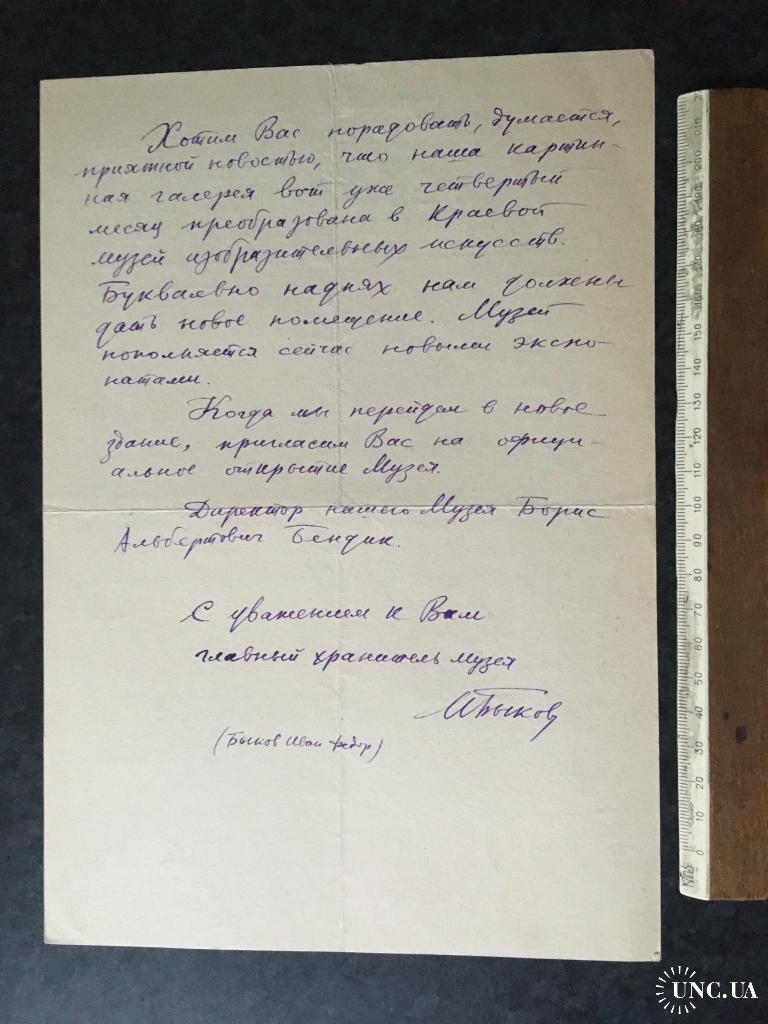 Хотим Вас порадовать, думается,
приятной новостью, что наша картин-
ная галерея вот уже четвертый
месяц преобразована в Краевой
музей изобразительных искусств.
Буквально наднях нам должны
дать новое помещение. Музей
пополняется сейчас новыми экспо-
натами.
Когда мы перейдем в новое
здание, пригласим Вас на офици-
альное открытие Музея.
Директор нашего Музея Борис
Альбертович Бендик.
С уважением к Вам
главный хранитель музея
ИБыков
(Быков Иван Федор)
0 10 20 30 40 50 60 70 80 90 100 110 120 130 140 150 160 170 180 190 200 210
UNC.UA